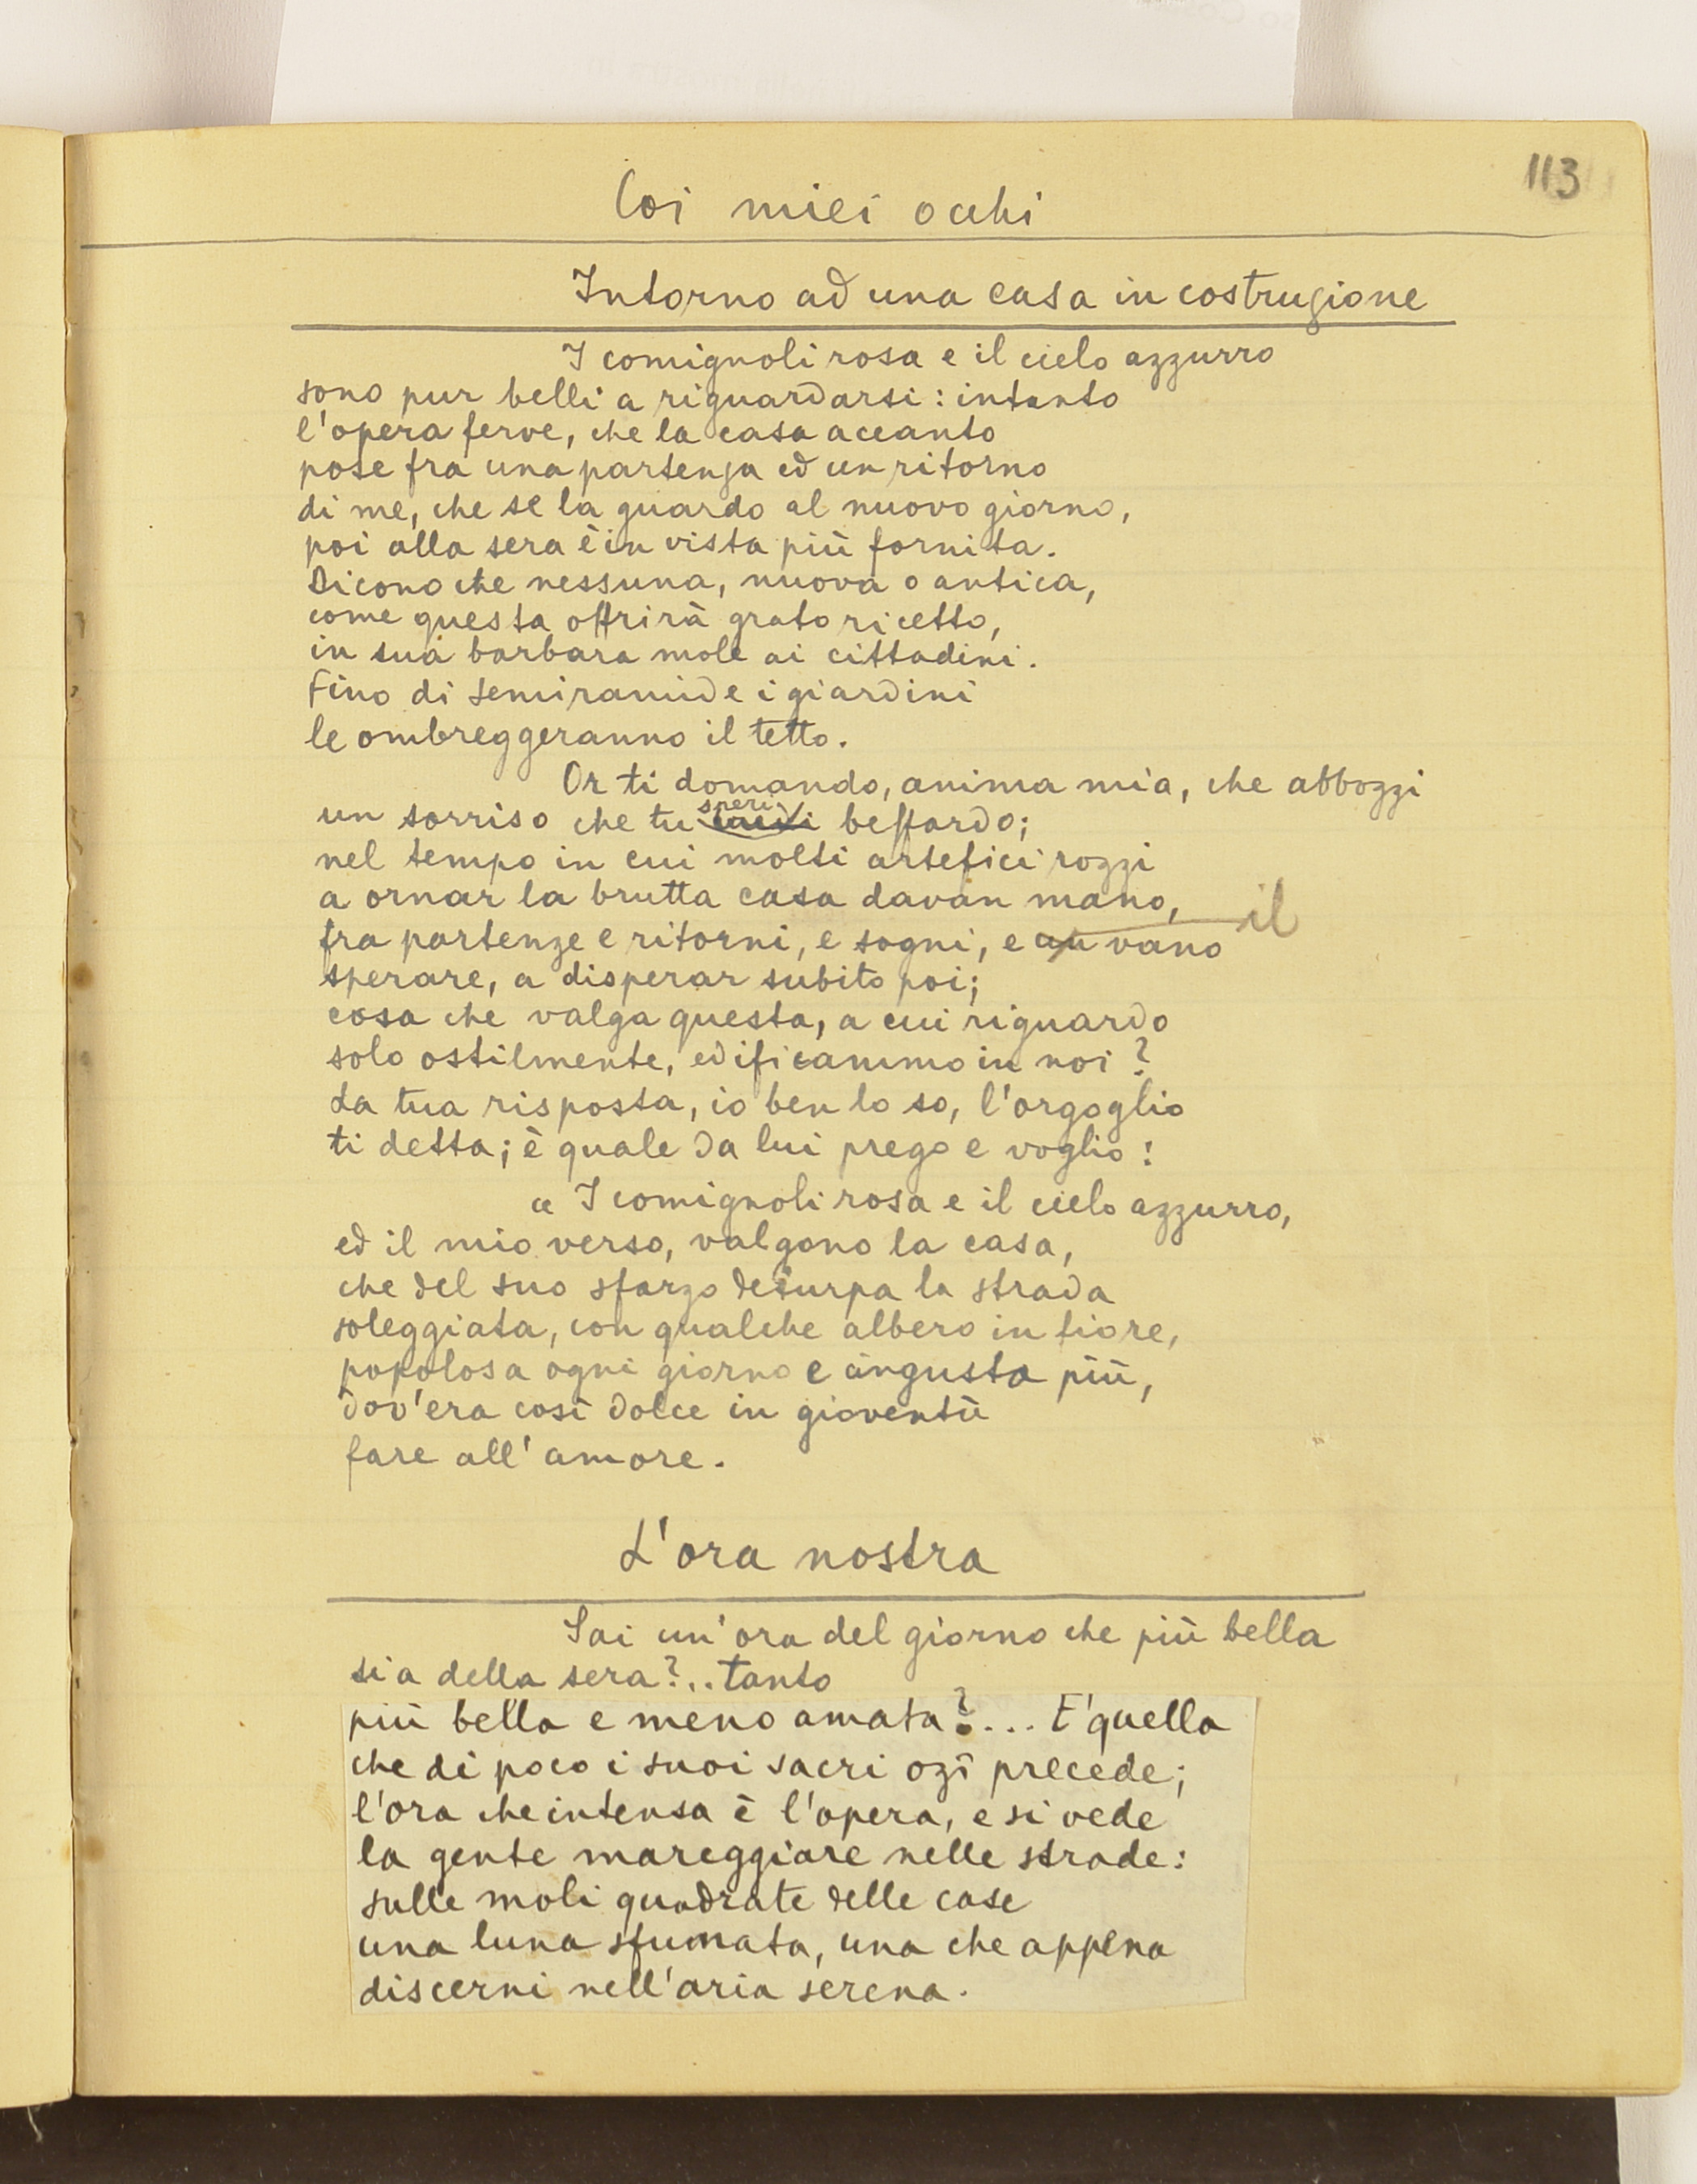 113
Coi miei occhi
Intorno ad una casa in costruzione
I comignoli rosa e il cielo azzurro
sono pur belli a riguardarsi: intanto
l'opera ferve, che la casa accanto
pose fra una partenza ed un ritorno
di me, che se la guardo al nuovo giorno,
poi alla sera è in vista più fornita.
Dicono che nessuna, nuova o antica,
come questa offrirà grato ricetto,
in sua barbara mole ai cittadini.
Fino di Semiramide i giardini
le ombreggeranno il tetto.
Or ti domando, anima mia, che abbozzi
un sorriso che tu speri beffardo;
nel tempo in cui molti artefici rozzi
a ornar la brutta casa davan mano,
fra partenze e ritorni, e sogni, e un vano il
sperare, a disperar subito poi;
cosa che valga questa, a cui riguardo
solo ostilmente, edificammo in noi?
La tua risposta, io ben lo so, l'orgoglio
ti detta; è quale da lui prego e voglio:
« I comignoli rosa e il cielo azzurro,
ed il mio verso, valgono la casa,
che del suo sforzo deturpa la strada
soleggiata, con qualche albero in fiore,
popolosa ogni giorno e angusta più,
dov'era così dolce in gioventù
fare all'amore.
L'ora nostra
Sai un'ora del giorno che più bella
sia della sera?..tanto
più bella e meno amata?.... E' quella
che di poco i suoi sacri ozî precede;
l'ora che intensa è l'opera, e si vede
la gente mareggiare nelle strade:
sulle moli quadrate delle case
una luna sfumata, una che appena
discerni nell'aria serena.